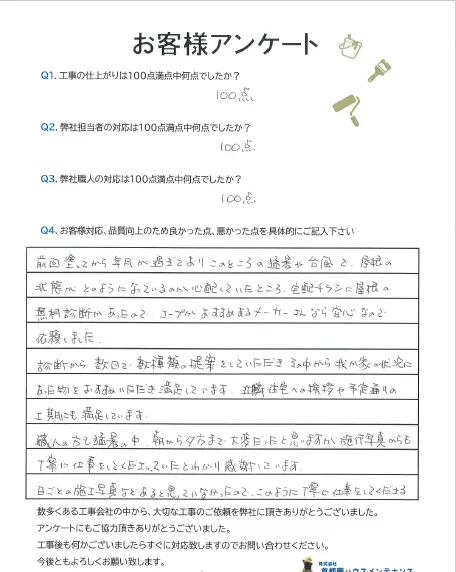 お客様アンケート
Q1. 工事の仕上がりは100点満点中何点でしたか？
100点
Q2. 弊社担当者の対応は100点満点中何点でしたか？
100点
Q3. 弊社職人の対応は100点満点中何点でしたか？
100点
Q4. お客様対応、品質向上のため良かった点、悪かった点を具体的にご記入下さい
前回塗ってから年月が過ぎており このところの猛暑や台風で、屋根の
状態が どのようになっているのか心配していたところ、宅配チラシに屋根の
無料診断があったので コープがおすすめするメーカーさんなら安心なので
依頼しました。
診断から 数日で 数種類の提案をしていただき その中から 我が家の状況に
あった物をおすすめいただき満足しています。近隣住宅への挨拶や予定通りの
工期にも満足しています。
職人の方も猛暑の中、朝から夕方まで大変だったと思いますが施行写真からも
丁寧に仕事をしてくださっていたとわかり感謝しています。
日ごとの施工写真などあると思っていなかったので、このように丁寧に仕事をしてくださる
数多くある工事会社の中から、大切な工事のご依頼を弊社に頂きありがとうございました。
アンケートにもご協力頂きありがとうございました。
工事後も何かございましたらすぐに対応致しますのでお問い合わせください。
今後ともよろしくお願い致します。
株式会社
首都圏ハウスメンテナンス